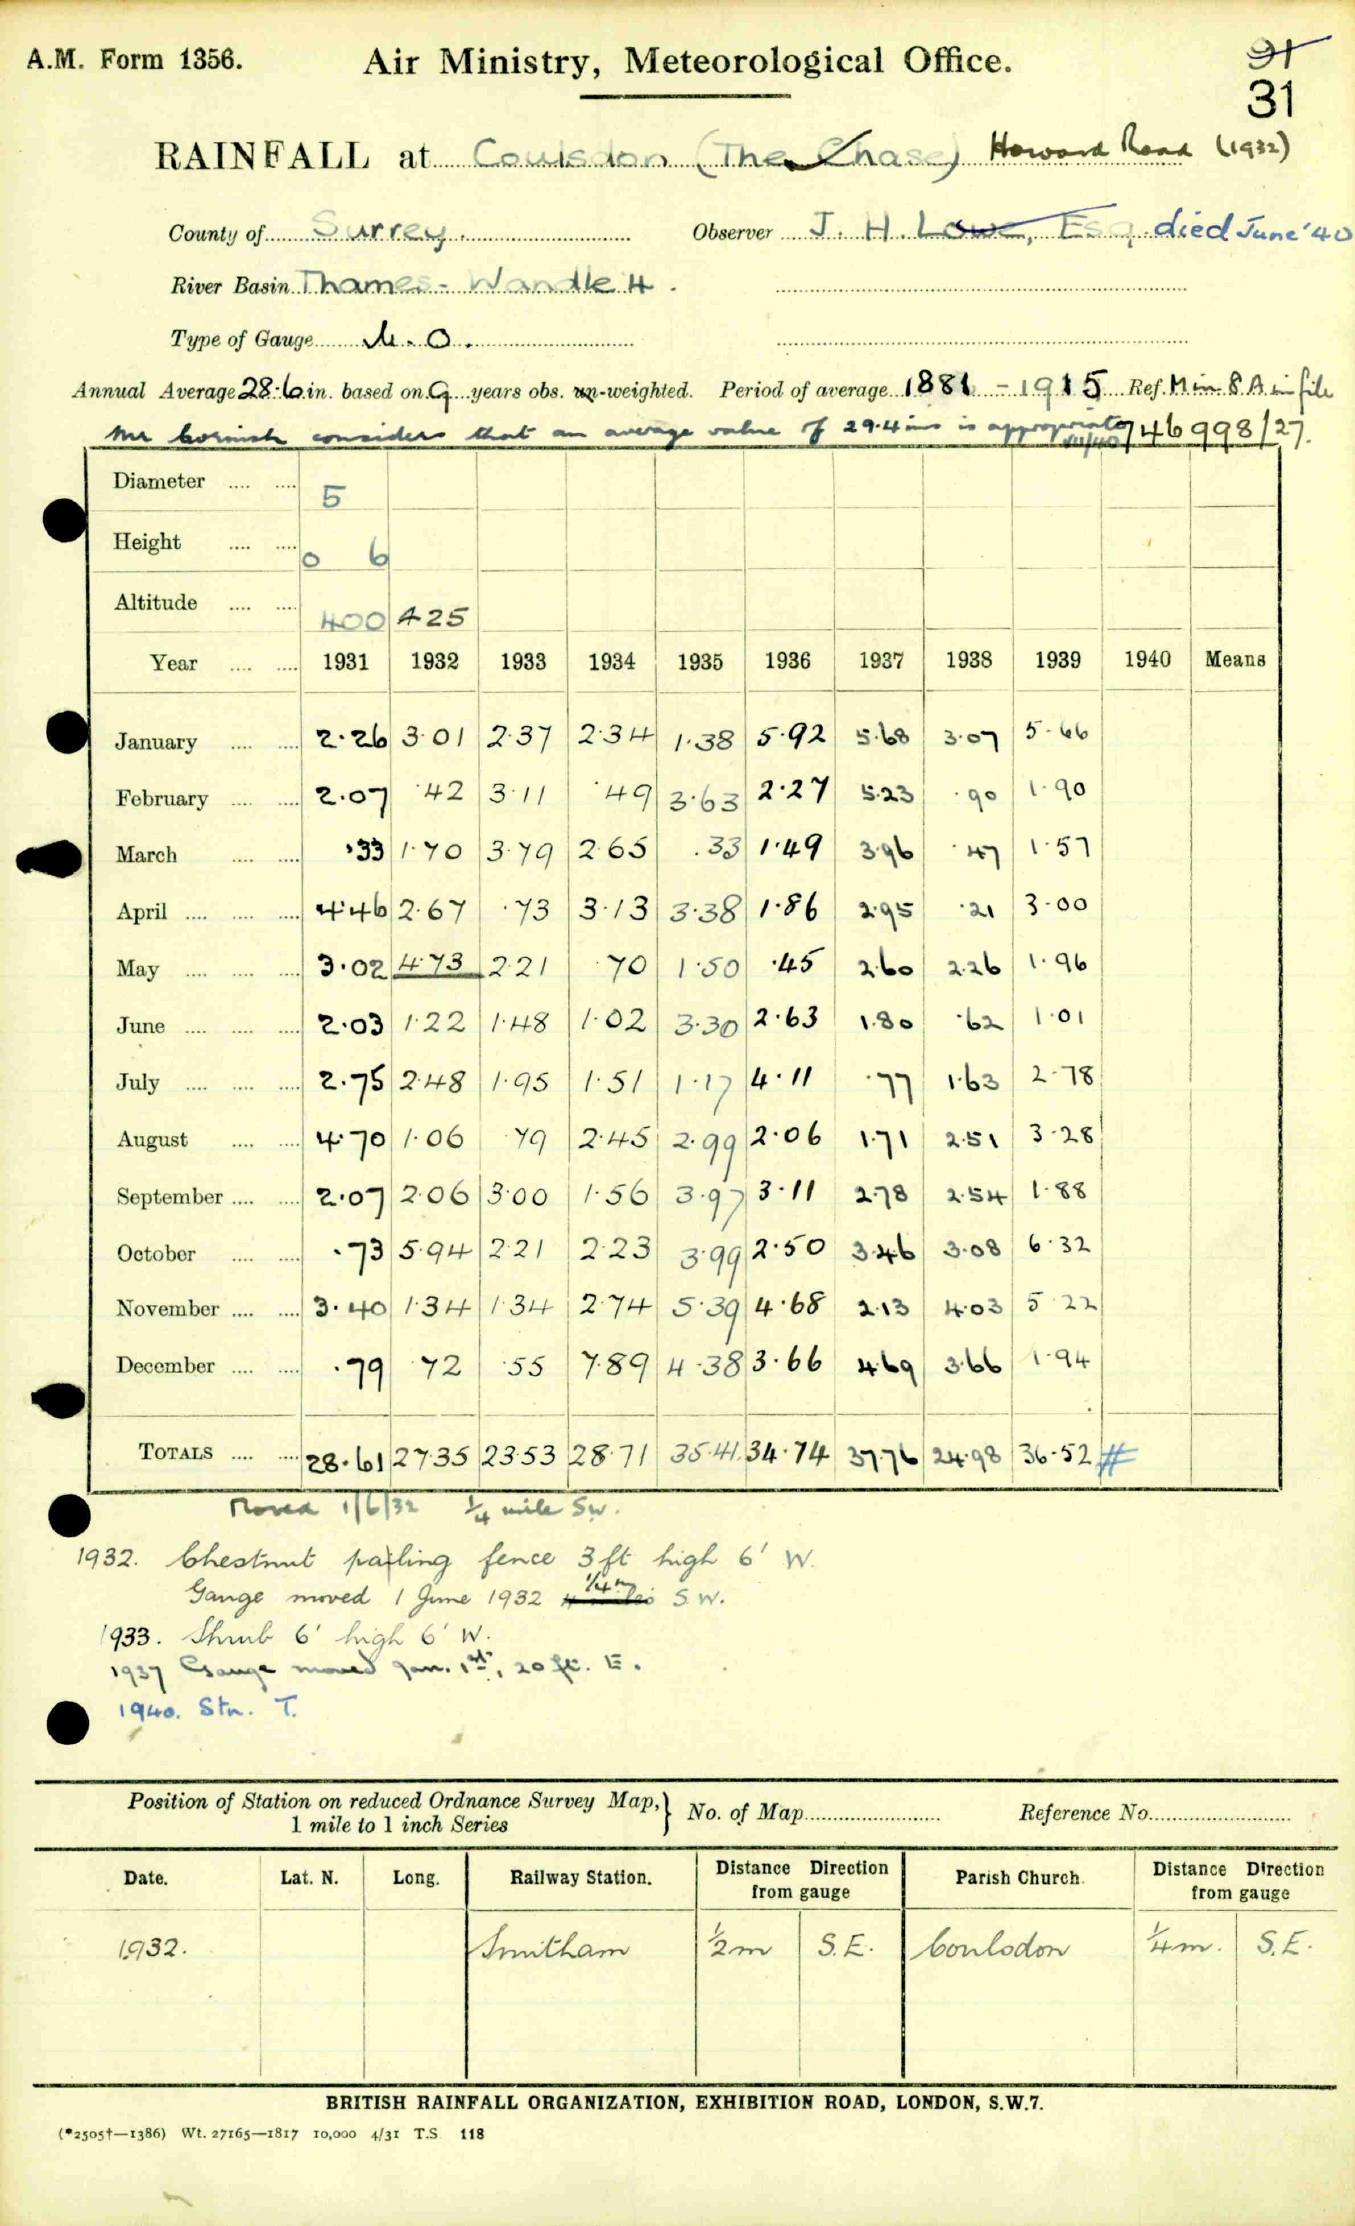 A.M. Form 1356. Air Ministry, Meteorological Office. 31
31
RAINFALL at Coulsdon (The Chase) Howard Road (1932)
County of Surrey. Observer J. H. Lowe, Esq. died June '40
River Basin Thames - Wandle 4.
Type of Gauge M.O.
Annual Average 28.6 in. based on 9 years obs. un-weighted. Period of average 1881 - 1915 Ref. Min 8 A in file
Mr Cornish considers that an average value of 29.4 ins is appropriate 746998/27.
Diameter 5
Height 0 6
Altitude 400 425
Year 1931 1932 1933 1934 1935 1936 1937 1938 1939 1940 Means
January 2.26 3.01 2.37 2.34 1.38 5.92 5.68 3.07 5.66
February 2.07 .42 3.11 .49 3.63 2.27 5.23 .90 1.90
March .33 1.70 3.79 2.65 .33 1.49 3.96 .47 1.57
April 4.46 2.67 .73 3.13 3.38 1.86 2.95 .21 3.00
May 3.02 4.73 2.21 .70 1.50 .45 2.60 2.26 1.96
June 2.03 1.22 1.48 1.02 3.30 2.63 1.80 .62 1.01
July 2.75 2.48 1.95 1.51 1.17 4.11 .77 1.63 2.78
August 4.70 1.06 .79 2.45 2.99 2.06 1.71 2.51 3.28
September 2.07 2.06 3.00 1.56 3.97 3.11 2.78 2.54 1.88
October .73 5.94 2.21 2.23 3.99 2.50 3.46 3.08 6.32
November 3.40 1.34 1.34 2.74 5.39 4.68 2.13 4.03 5.22
December .79 .72 .55 7.89 4.38 3.66 4.69 3.66 1.94
TOTALS 28.61 27.35 23.53 28.71 35.41 34.74 37.76 24.98 36.52 #
Moved 1/6/32 1/4 mile SW.
1932. Chestnut paling fence 3 ft high 6' W.
Gauge moved 1 June 1932 1/4 m S.W.
1933. Shrub 6' high 6' W.
1937 Gauge moved Jan. 1st, 20 ft. E.
1940. Stn. T.
Position of Station on reduced Ordnance Survey Map, } No. of Map Reference No.
1 mile to 1 inch Series
Date. Lat. N. Long. Railway Station. Distance Direction from gauge Parish Church. Distance Direction from gauge
1932. Smitham 1/2 m S.E. Coulsdon 1/4 m. S.E.
BRITISH RAINFALL ORGANIZATION, EXHIBITION ROAD, LONDON, S.W.7.
(*2505†—1386) Wt. 27165—1817 10,000 4/31 T.S 118